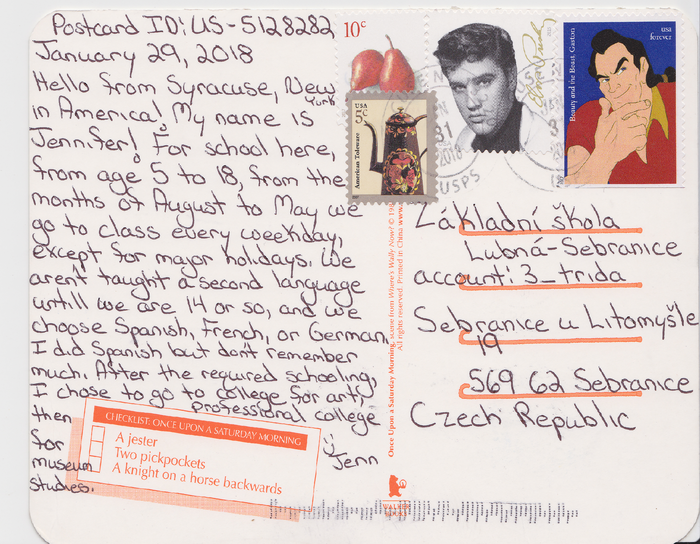 Postcard ID: US-5128282
January 29, 2018
Hello from Syracuse, New
York
in America! My name is
Jennifer! For school here,
from age 5 to 18, from the
months of August to May we
go to class every weekday,
except for major holidays. We
aren't taught a second language
untill we are 14 or so, and we
choose Spanish, French, or German.
I did Spanish but don't remember
much. After the required schooling,
I chose to go to college for art,
then professional college
for
museum
studies.
:)
Jenn
CHECKLIST: ONCE UPON A SATURDAY MORNING
A jester
Two pickpockets
A knight on a horse backwards
10c
USA
5c
American Toleware
Elvis Presley
USPS
31
2018
Beauty and the Beast, Gaston
usa
forever
Once Upon a Saturday Morning, scene from Where's Wally Now? ©
All rights reserved. Printed in China
Základní škola
Lubná-Sebranice
account: 3_trida
Sebranice u Litomyšle
19
569 62 Sebranice
Czech Republic